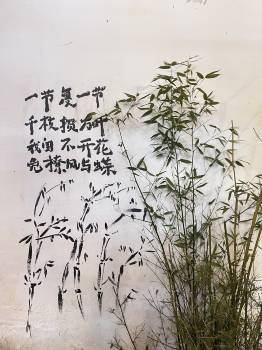 一节复一节
千枝攒万叶
我自不开花
免撩风与蝶